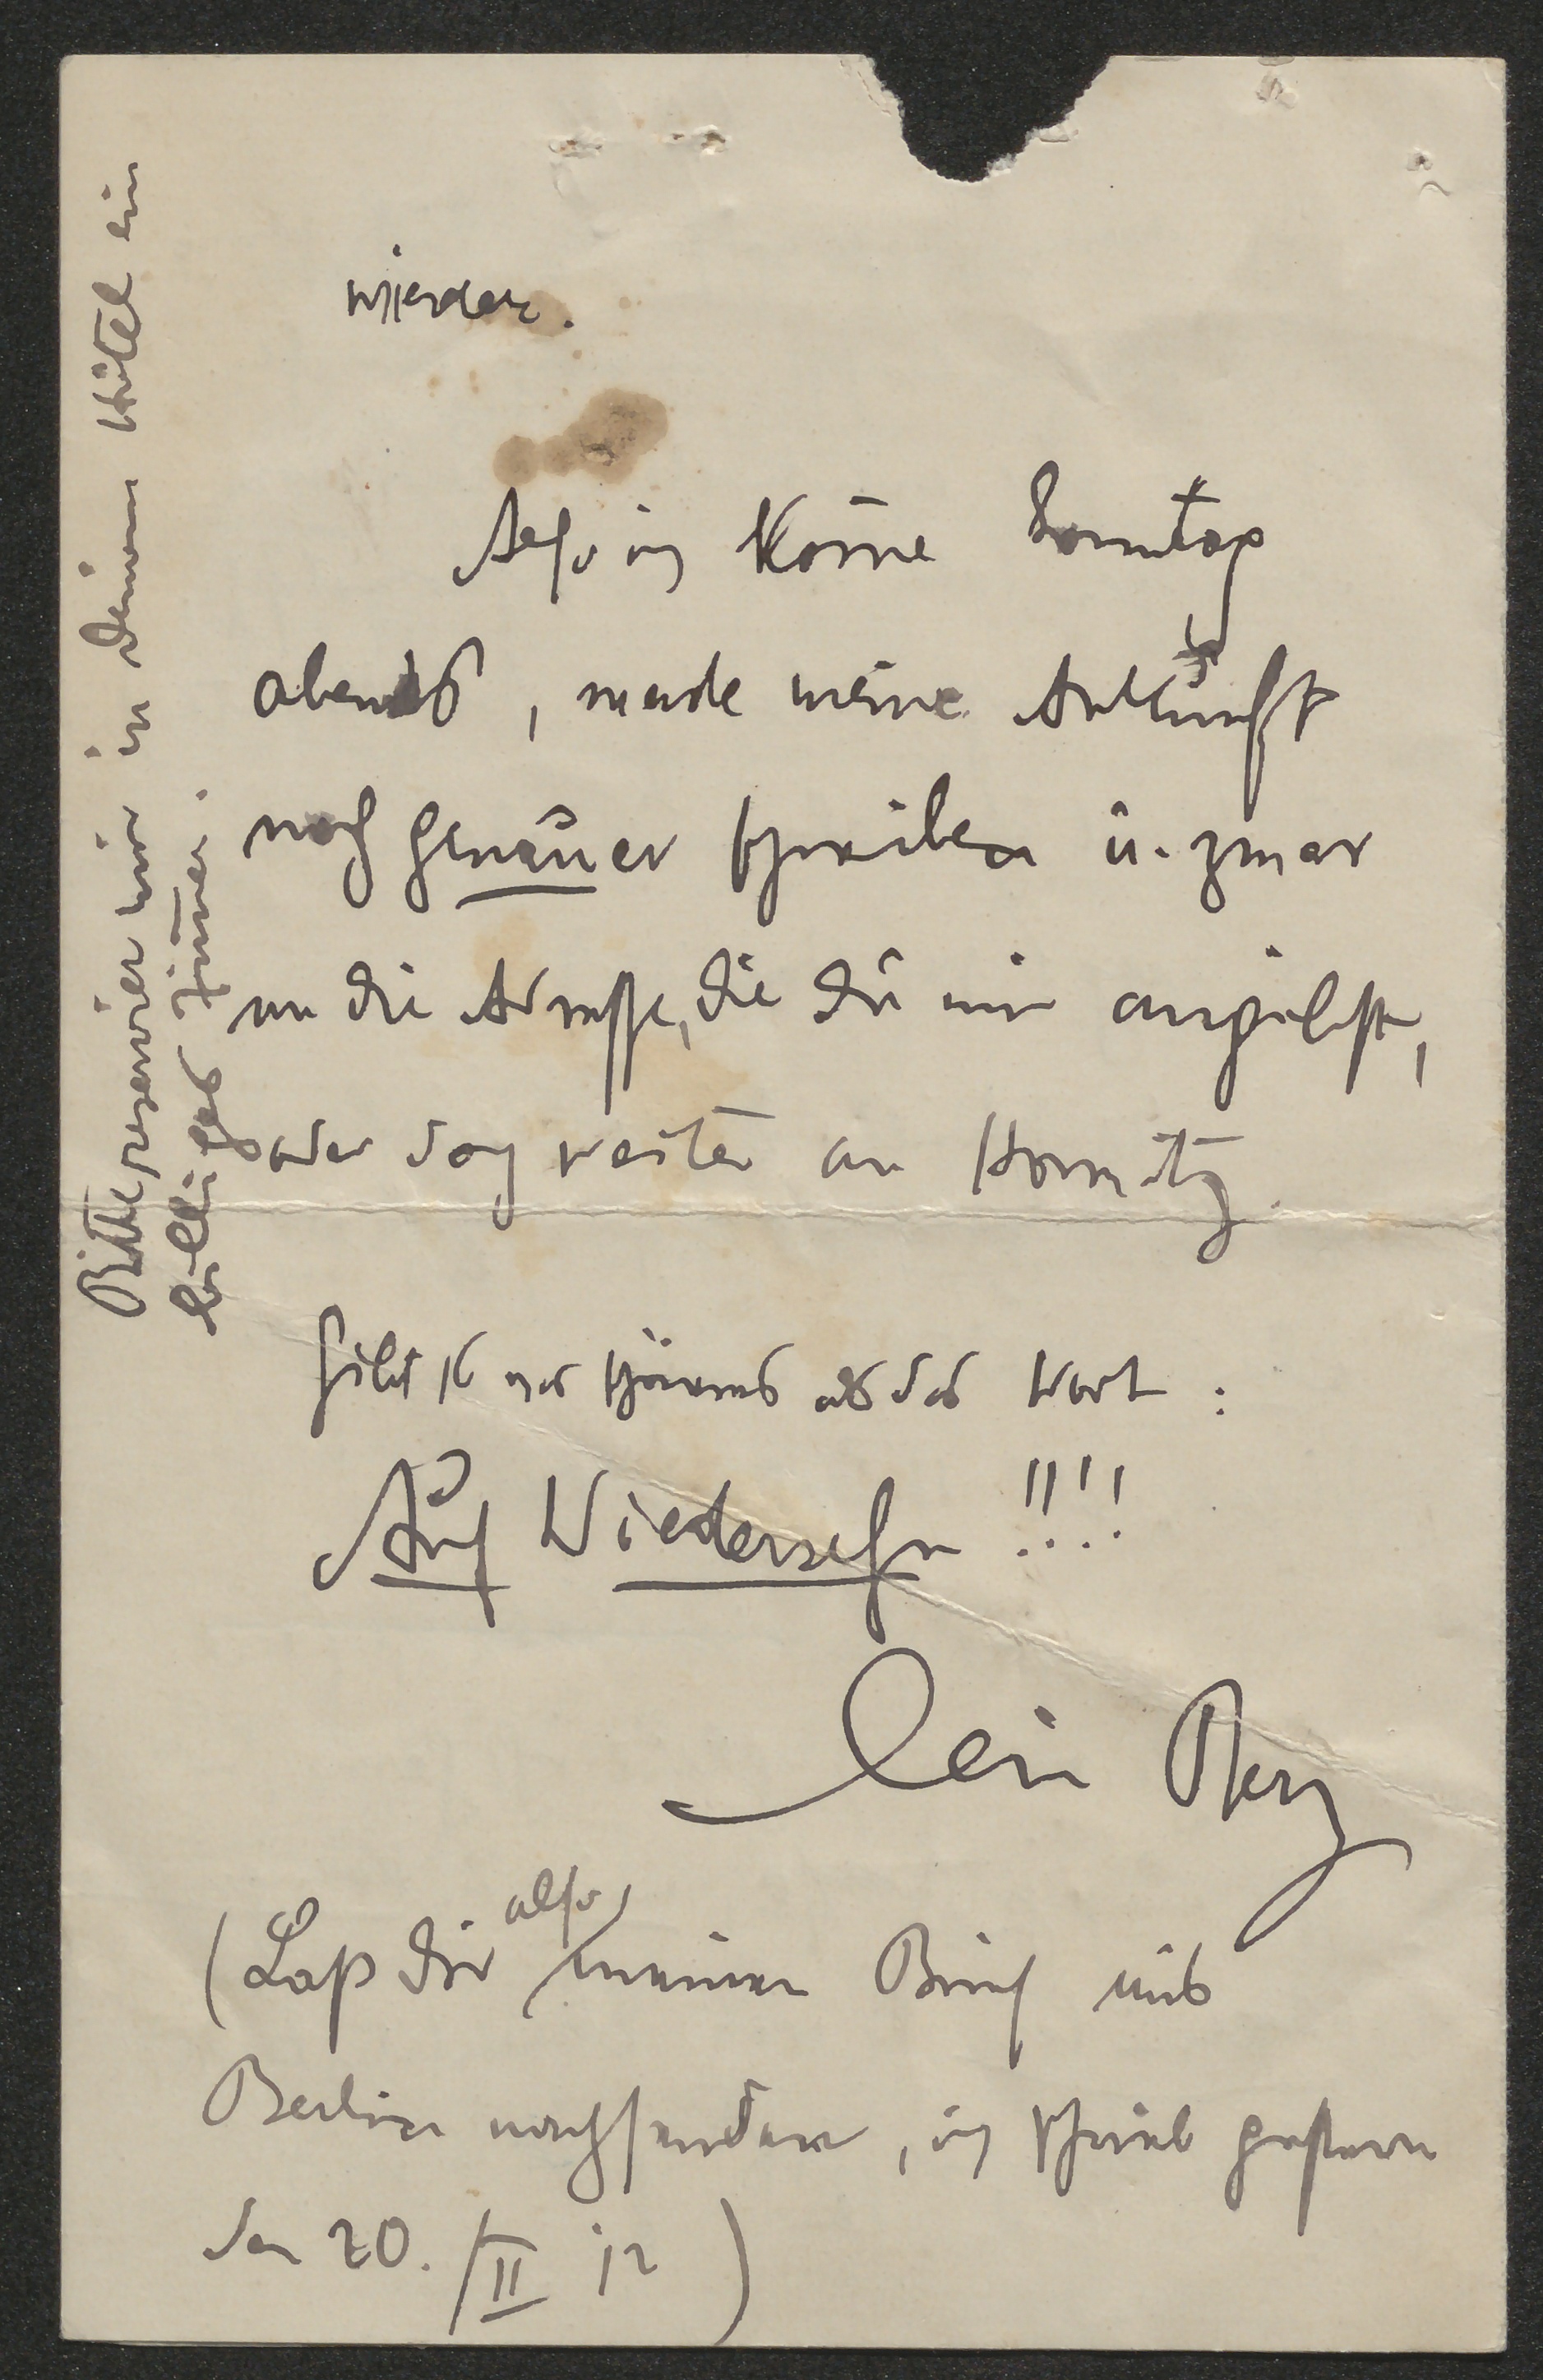 wieder.
Also ich kom̅e Sonntag
abends, werde meine Ankunft
noch genauer schreiben u. zwar
an die Adresse, die Du mir angiebst,
oder doch weiter an
Giebt es was schöneres als das Wort:
Auf Wiedersehn!!!!
Dein Perz
(Laß Dir also meinen Brief aus
Berlin nachsenden, ich schrieb gestern
den 20./II 12)
Bitte reservier mir in Deinem Hôtel ein
billiges Zim̅er.